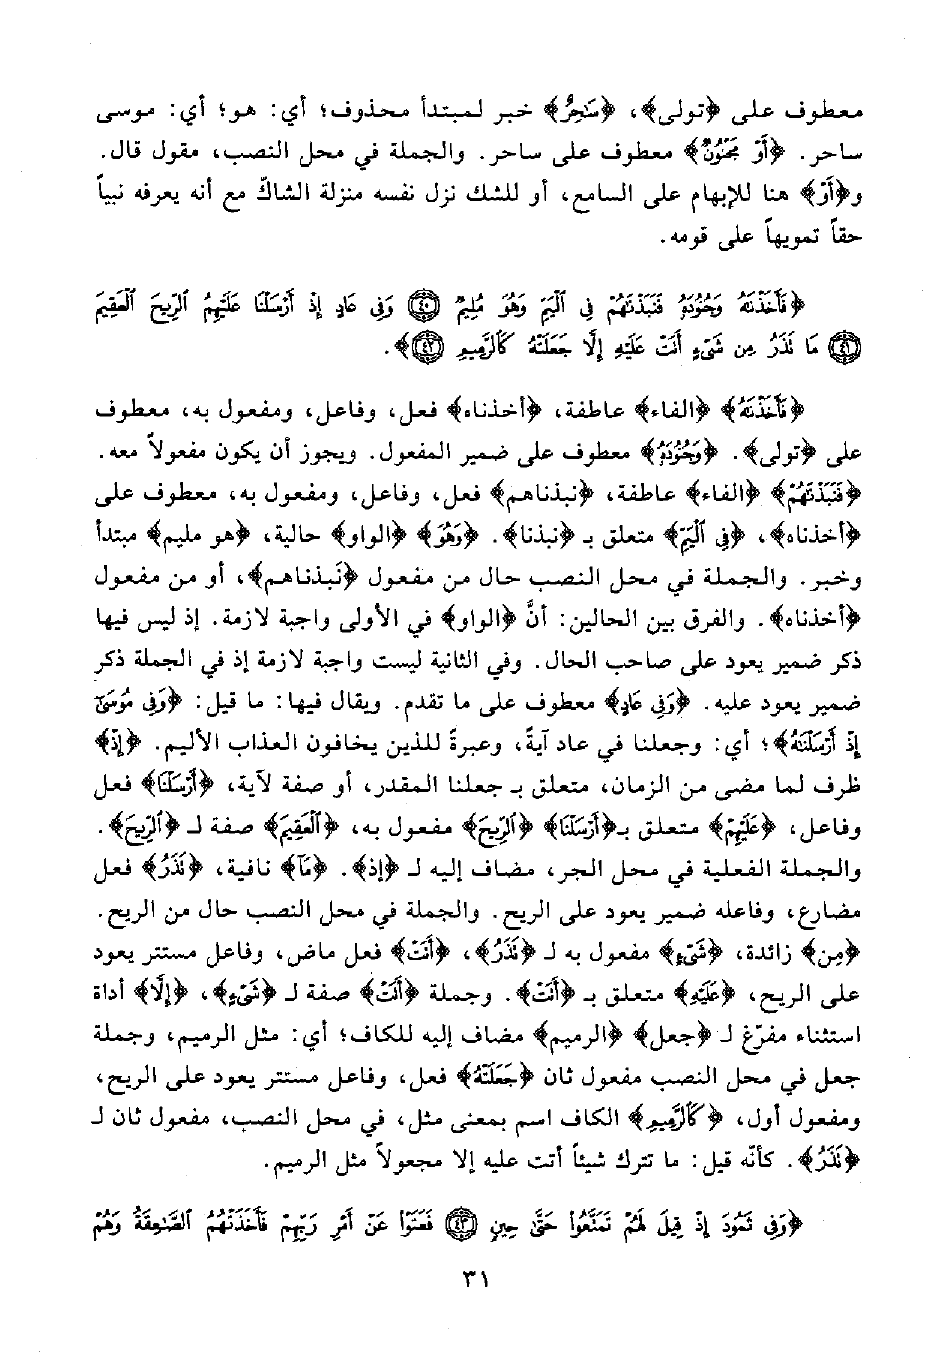 معطوف على ﴿تولى﴾، ﴿سَٰحِرٌ﴾ خبر لمبتدأ محذوف؛ أي: هو؛ أي: موسى
ساحر. ﴿أَوْ مَجْنُونٌ﴾ معطوف على ساحر. والجملة في محل النصب، مقول قال.
و﴿أَوْ﴾ هنا للإبهام على السامع، أو للشك نزل نفسه منزلة الشاكّ مع أنه يعرفه نبياً
حقاً تمويهاً على قومه.
﴿فَأَخَذْنَٰهُ وَجُنُودَهُۥ فَنَبَذْنَٰهُمْ فِى ٱلْيَمِّ وَهُوَ مُلِيمٌ ﴿٤٠﴾ وَفِى عَادٍ إِذْ أَرْسَلْنَا عَلَيْهِمُ ٱلرِّيحَ ٱلْعَقِيمَ
﴿٤١﴾ مَا تَذَرُ مِن شَىْءٍ أَتَتْ عَلَيْهِ إِلَّا جَعَلَتْهُ كَٱلرَّمِيمِ ﴿٤٢﴾﴾.
﴿فَأَخَذْنَٰهُ﴾ ﴿الفاء﴾ عاطفة، ﴿أخذناه﴾ فعل، وفاعل، ومفعول به، معطوف
على ﴿تولى﴾. ﴿وَجُنُودَهُۥ﴾ معطوف على ضمير المفعول. ويجوز أن يكون مفعولاً معه.
﴿فَنَبَذْنَٰهُمْ﴾ ﴿الفاء﴾ عاطفة، ﴿نبذناهم﴾ فعل، وفاعل، ومفعول به، معطوف على
﴿أخذناه﴾، ﴿فِى ٱلْيَمِّ﴾ متعلق بـ ﴿نبذنا﴾. ﴿وَهُوَ﴾ ﴿الواو﴾ حالية، ﴿هو مليم﴾ مبتدأ
وخبر. والجملة في محل النصب حال من مفعول ﴿نَبذناهم﴾، أو من مفعول
﴿أخذناه﴾. والفرق بين الحالين: أنَّ ﴿الواو﴾ في الأولى واجبة لازمة. إذ ليس فيها
ذكر ضمير يعود على صاحب الحال. وفي الثانية ليست واجبة لازمة إذ في الجملة ذكر
ضمير يعود عليه. ﴿وَفِى عَادٍ﴾ معطوف على ما تقدم. ويقال فيها: ما قيل: ﴿وَفِى مُوسَىٰٓ
إِذْ أَرْسَلْنَٰهُ﴾؛ أي: وجعلنا في عاد آيةً، وعبرةً للذين يخافون العذاب الأليم. ﴿إِذْ﴾
ظرف لما مضى من الزمان، متعلق بـ جعلنا المقدر، أو صفة لآية، ﴿أَرْسَلْنَا﴾ فعل
وفاعل، ﴿عَلَيْهِمُ﴾ متعلق بـ﴿أَرْسَلْنَا﴾ ﴿ٱلرِّيحَ﴾ مفعول به، ﴿ٱلْعَقِيمَ﴾ صفة لـ ﴿ٱلرِّيحَ﴾.
والجملة الفعلية في محل الجر، مضاف إليه لـ ﴿إذ﴾. ﴿مَا﴾ نافية، ﴿تَذَرُ﴾ فعل
مضارع، وفاعله ضمير يعود على الريح. والجملة في محل النصب حال من الريح.
﴿مِن﴾ زائدة، ﴿شَىْءٍ﴾ مفعول به لـ ﴿تَذَرُ﴾، ﴿أَتَتْ﴾ فعل ماض، وفاعل مستتر يعود
على الريح، ﴿عَلَيْهِ﴾ متعلق بـ ﴿أَتَتْ﴾. وجملة ﴿أَتَتْ﴾ صفة لـ ﴿شَىْءٍ﴾، ﴿إِلَّا﴾ أداة
استثناء مفرّغ لـ ﴿جعل﴾ ﴿الرميم﴾ مضاف إليه للكاف؛ أي: مثل الرميم، وجملة
جعل في محل النصب مفعول ثان ﴿جَعَلَتْهُ﴾ فعل، وفاعل مستتر يعود على الريح،
ومفعول أول، ﴿كَٱلرَّمِيمِ﴾ الكاف اسم بمعنى مثل، في محل النصب، مفعول ثان لـ
﴿تَذَرُ﴾. كأنّه قيل: ما تترك شيئاً أتت عليه إلا مجعولاً مثل الرميم.
﴿وَفِى ثَمُودَ إِذْ قِيلَ لَهُمْ تَمَتَّعُوا۟ حَتَّىٰ حِينٍ ﴿٤٣﴾ فَعَتَوْا۟ عَنْ أَمْرِ رَبِّهِمْ فَأَخَذَتْهُمُ ٱلصَّٰعِقَةُ وَهُمْ
٣١